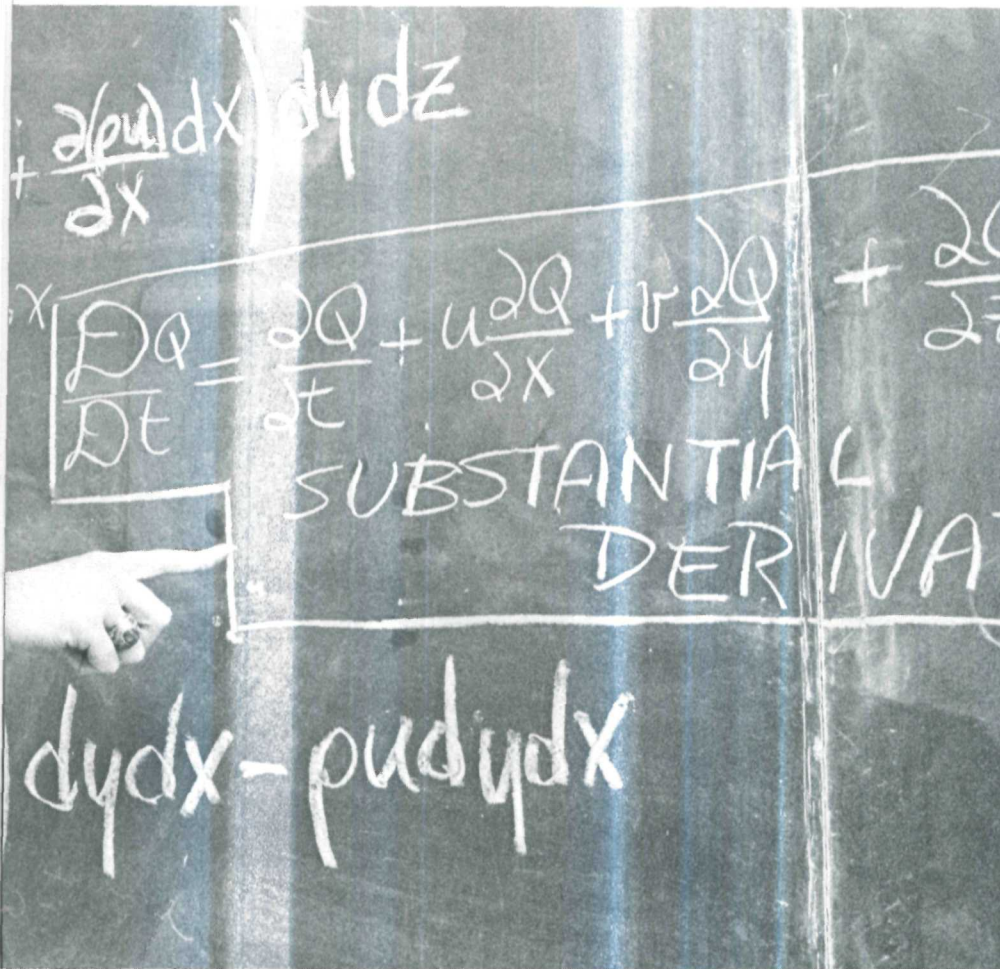 + ∂(ρu)/∂x dx) dy dz
x
DQ/Dt = ∂Q/∂t + u ∂Q/∂x + v ∂Q/∂y + ∂
SUBSTANTIAL
DERIVA
dydx - ρudydx